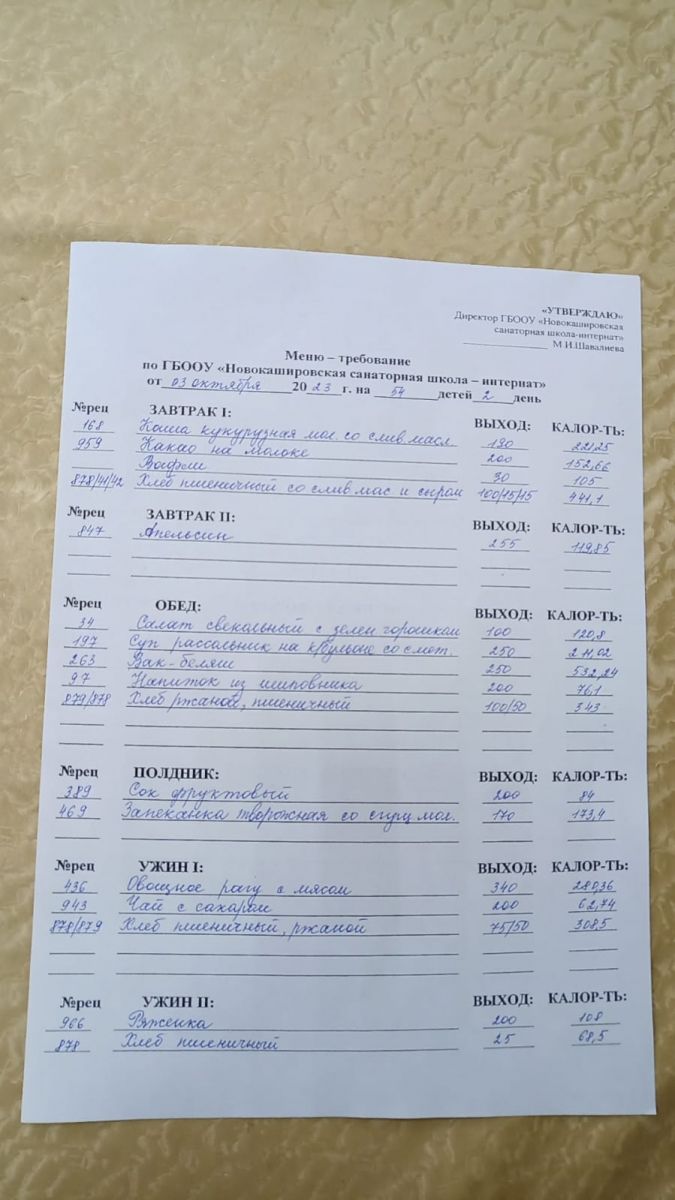 «УТВЕРЖДАЮ»
Директор ГБООУ «Новокашировская
санаторная школа-интернат»
________________ М.И.Шавалиева
Меню – требование
по ГБООУ «Новокашировская санаторная школа – интернат»
от 03 октября 2023 г. на 54 детей 2 день
№рец ЗАВТРАК I: ВЫХОД: КАЛОР-ТЬ:
168 Каша кукурузная мол. со слив масл. 190 221,25
959 Какао на молоке 200 152,66
Вафли 30 105
878/41/42 Хлеб пшеничный со слив мас и сыром 100/15/15 441,1
№рец ЗАВТРАК II: ВЫХОД: КАЛОР-ТЬ:
847 Апельсин 255 119,85
№рец ОБЕД: ВЫХОД: КАЛОР-ТЬ:
34 Салат свекольный с зелен горошком 100 120,8
197 Суп рассольник на бульоне со смет. 250 211,02
263 Вак-беляш 250 532,24
97 Напиток из шиповника 200 76,1
879/878 Хлеб ржаной, пшеничный 100/50 343
№рец ПОЛДНИК: ВЫХОД: КАЛОР-ТЬ:
389 Сок фруктовый 200 84
469 Запеканка творожная со сгущ мол. 170 173,4
№рец УЖИН I: ВЫХОД: КАЛОР-ТЬ:
436 Овощное рагу с мясом 340 280,36
943 Чай с сахаром 200 62,74
878/879 Хлеб пшеничный, ржаной 75/50 308,5
№рец УЖИН II: ВЫХОД: КАЛОР-ТЬ:
966 Ряженка 200 108
878 Хлеб пшеничный 25 68,5